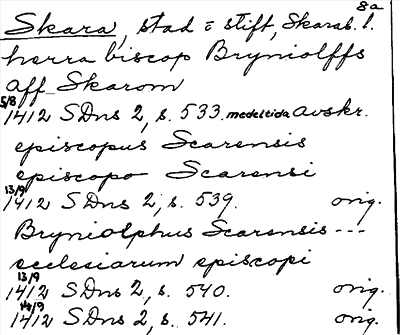 8a
Skara, stad o stift, Skarab. l.
herra biscop Bryniolffs
aff Skarom
5/8
1412 SDns 2, s. 533. medeltida Avskr.
episcopus Scarensis
episcopo Scarensi
13/9
1412 SDns 2, s. 539. orig.
Bryniolphus Scarensis ---
ecclesiarum episcopi
13/9
1412 SDns 2, s. 540. orig.
14/9
1412 SDns 2, s. 541. orig.